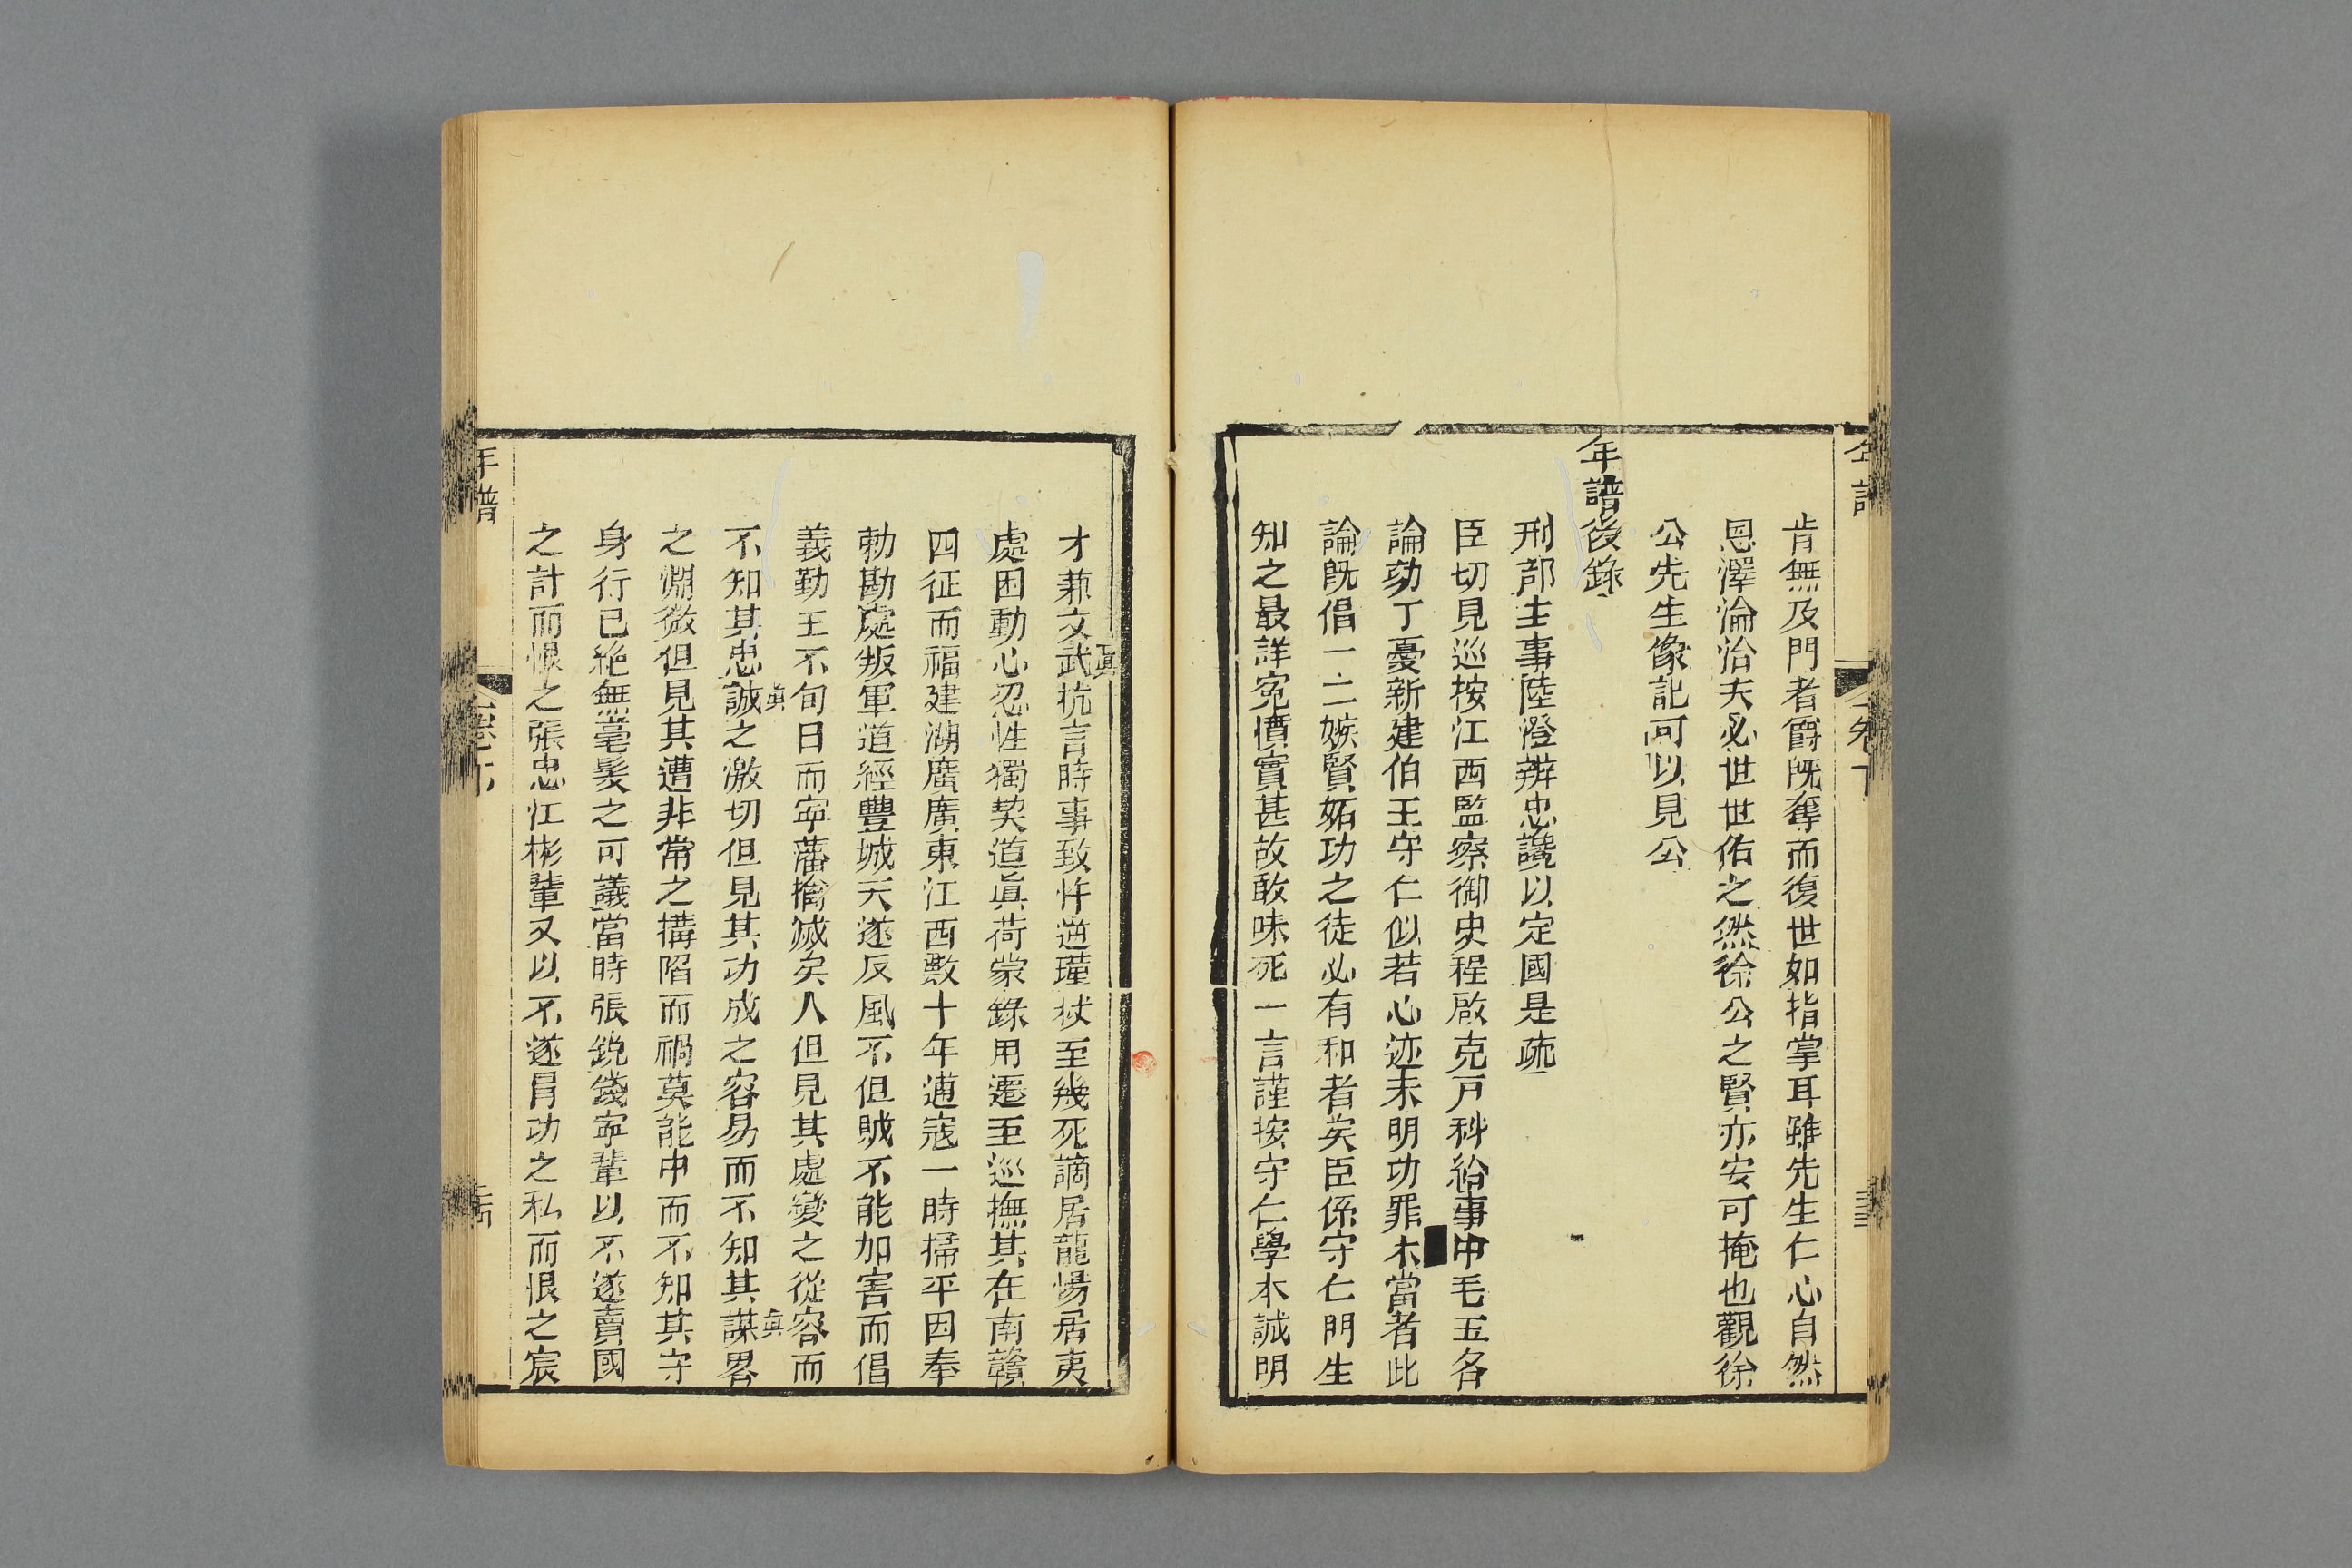 肯無及門者爵既奪而復世如指掌耳雖先生仁心自然
恩澤淪洽天必世世佑之然徐公之賢亦安可掩也觀徐
公先生像記可以見公
年譜後錄
刑部主事陸澄辨忠讒以定國是疏
臣切見巡按江西監察御史程啟克戸科給事中毛玉各
論劾丁憂新建伯王守仁似若心迹未明功罪未當者此
論既倡一二嫉賢妬功之徒必有和者矣臣係守仁門生
知之最詳寃憤實甚故敢昧死一言謹按守仁學本誠明
才兼文武抗言時事致忤逆瑾杖至幾死謫居龍場居夷
眞
處困動心忍性獨契道眞荷蒙錄用遷至巡撫其在南贛
四征而福建湖廣廣東江西數十年逋寇一時掃平因奉
勅勘處叛軍道經豐城天遂反風不但賊不能加害而倡
義勤王不旬日而寧藩擒滅矣人但見其處變之從容而
不知其忠誠之激切但見其功成之容易而不知其謀畧
眞
眞
之淵微但見其遭非常之搆陷而禍莫能中而不知其守
身行已絶無毫髮之可議當時張銳錢寧輩以不遂賣國
之計而恨之張忠江彬輩又以不遂冐功之私而恨之宸
年譜
卷下